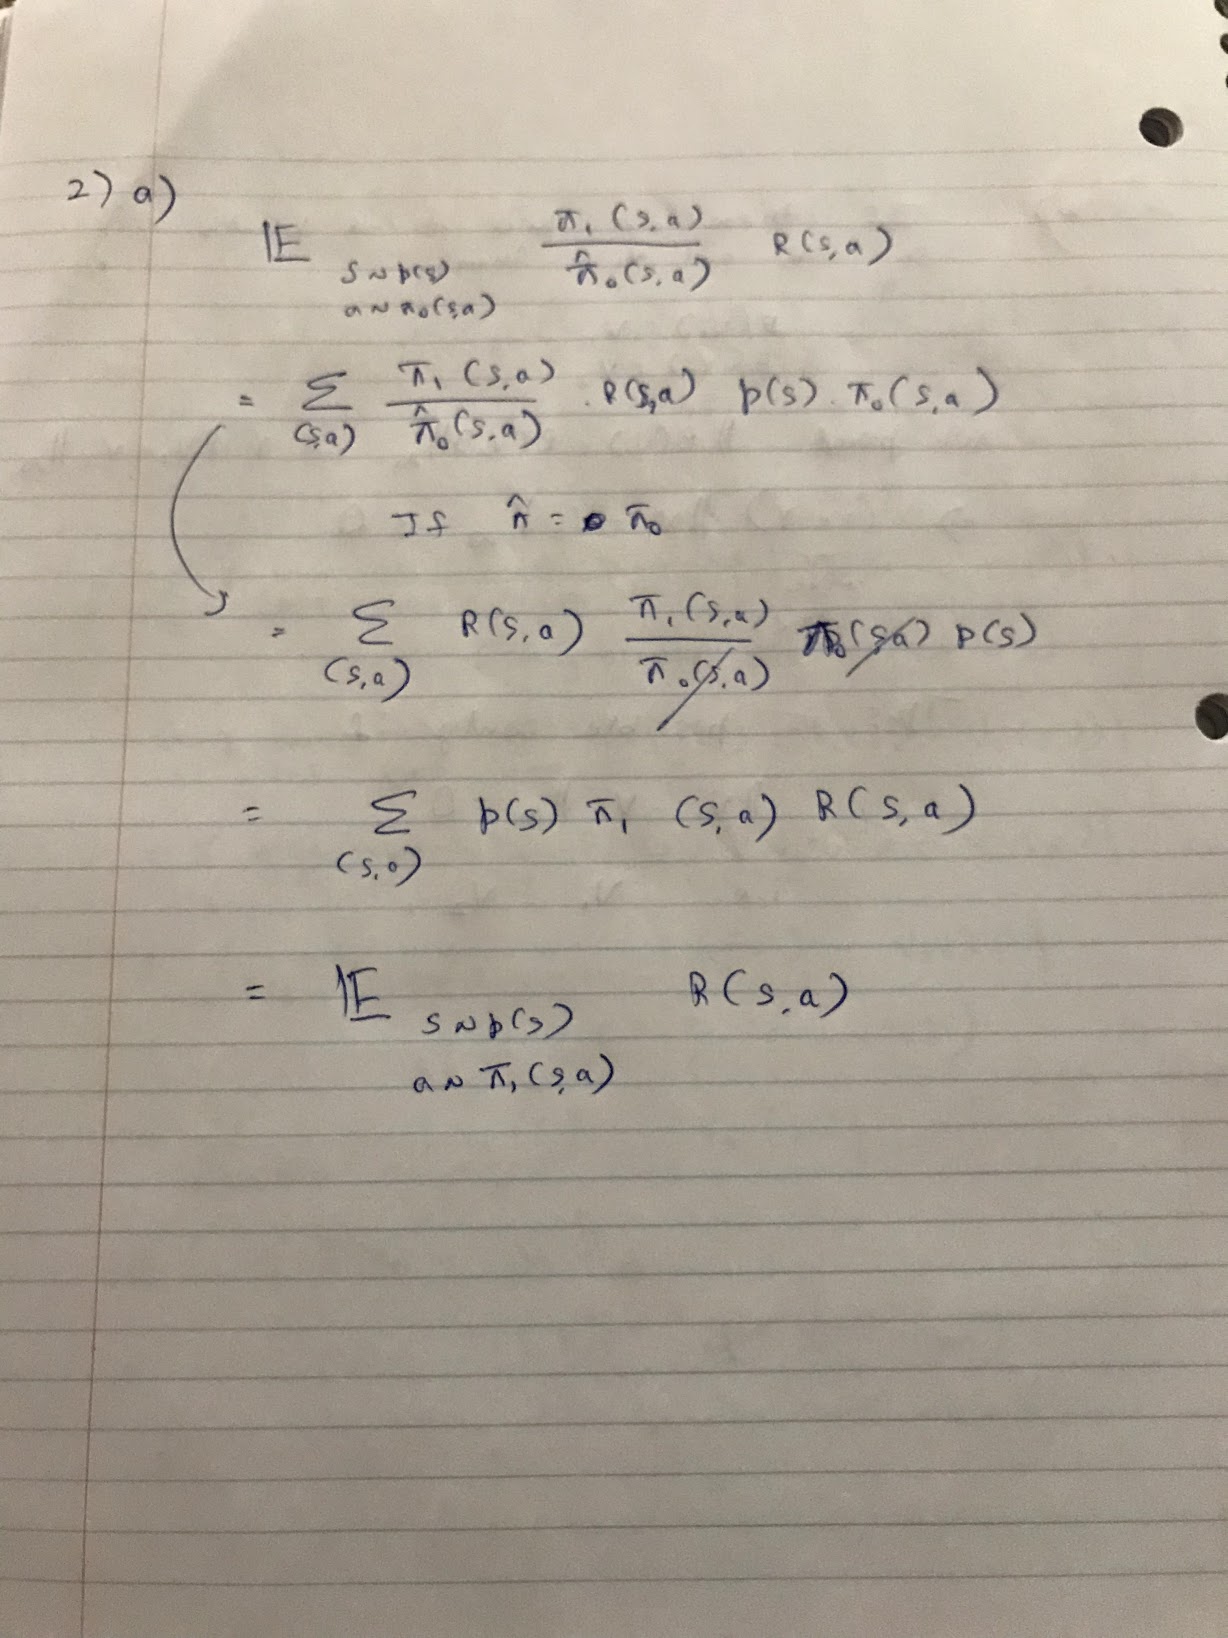 2) a)
𝔼_{s~p(s), a~π₀(s,a)} π₁(s,a) / π̂₀(s,a) R(s,a)
= Σ_{(s,a)} π₁(s,a) / π̂₀(s,a) . R(s,a) p(s) . π₀(s,a)
If π̂ = π₀
= Σ_{(s,a)} R(s,a) π₁(s,a) / π₀(s,a) π₀(s,a) p(s)
= Σ_{(s,a)} p(s) π₁ (s,a) R(s,a)
= 𝔼_{s~p(s), a~π₁(s,a)} R(s,a)